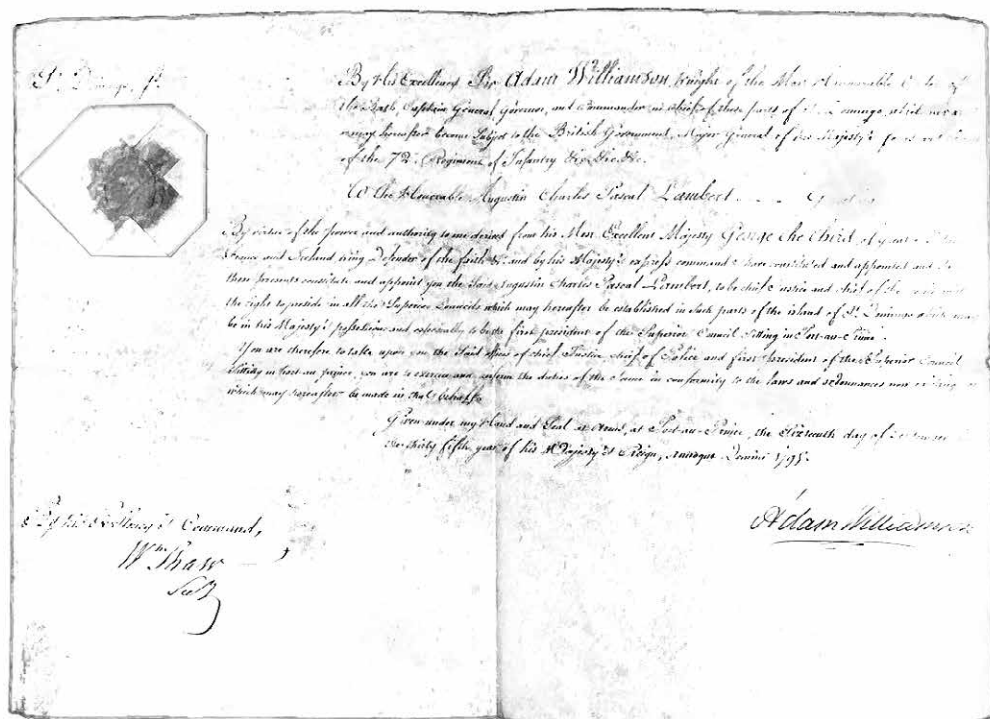 St. Domingo, ss.
By His Excellency Sir Adam Williamson, Knight of the Most Honorable Order of
the Bath, Captain General, Governor, and Commander in Chief of those parts of St. Domingo, which now are
may hereafter become Subject to the British Government, Major General of his Majesty's forces and
of the 72d. Regiment of Infantry &c. &c. &c.
To the Honorable Augustin Charles Pascal Lambert
By virtue of the power and authority to me derived from his Most Excellent Majesty George the Third of great
France and Ireland King Defender of the faith &c. and by his Majesty's express command I have constituted and appointed and do
these presents constitute and appoint you the Said Augustin Charles Pascal Lambert, to be chief Justice and chief of the police
the right to preside in all the Superior Councils which may hereafter be established in Such parts of the island of St. Domingo which may
be in his Majesty's possession and especially to be the first president of the Superior Council Sitting in Port-au-Prince.
You are therefore to take upon you the Said offices of chief Justice, chief of Police and first President of the Superior Council
Sitting in Port au prince, you are to exercise and perform the duties of the Same in conformity to the laws and ordonnances now
which may hereafter be made in that behalf.
Given under my Hand and Seal at Arms, at Port-au-Prince, the Sixteenth day of
the thirty fifth year of his Majesty's Reign, Annoque Domini 1795.
By his Excellency's Command,
Wm Shaw
Secy
Adam Williamson